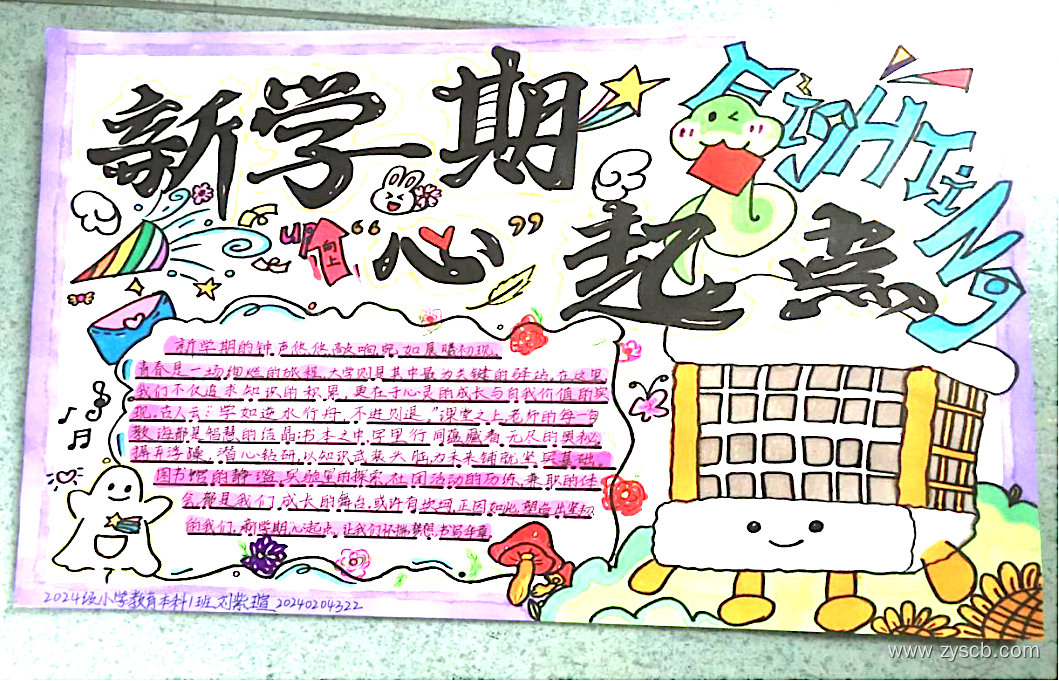 新学期
FigHTiNg
up
向上
“心”起点
新学期的钟声悠悠敲响,宛如晨曦初现,
青春是一场绚烂的旅程,大学则是其中最为关键的驿站,在这里
我们不仅追求知识的积累,更在于心灵的成长与自我价值的实
现,古人云:“学如逆水行舟,不进则退。”课堂之上老师的每一句
教诲都是智慧的结晶书本之中,字里行间蕴藏着无尽的奥秘,
摒弃浮躁,潜心钻研,以知识武装大脑,为未来铺就坚实基础,
图书馆的静谧,实验室的探索,社团活动的历练,兼职的体
会,都是我们成长的舞台,或许有坎坷,正因如此,塑造出坚韧
的我们,新学期心起点,让我们怀揣梦想,书写华章
2024级小学教育本科1班 刘紫瑄 20240204322
www.zyscb.com